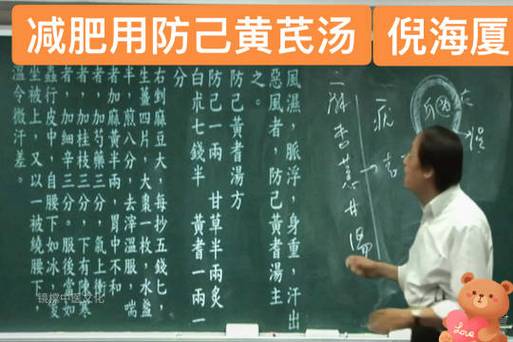 减肥用防己黄芪汤
倪海厦
風濕，脈浮，身重，汗出
惡風者，防己黃耆湯主
之。
防己黃耆湯方
防己一兩 甘草半兩炙
白朮七錢半 黃耆一兩一
分
右剉麻豆大，每抄五錢匕，
生薑四片，大棗一枚，水盞
半，煎八分，去滓溫服，喘
者，加麻黃半兩，胃中不和
者，加芍藥三分，氣上衝
者，加桂枝三分，下有陳寒
者，加細辛三分。服後當如
蟲行皮中，自腰下如冰，
坐被上，又以一被繞腰下，
溫令微汗差。
麻杏薏甘湯
Love